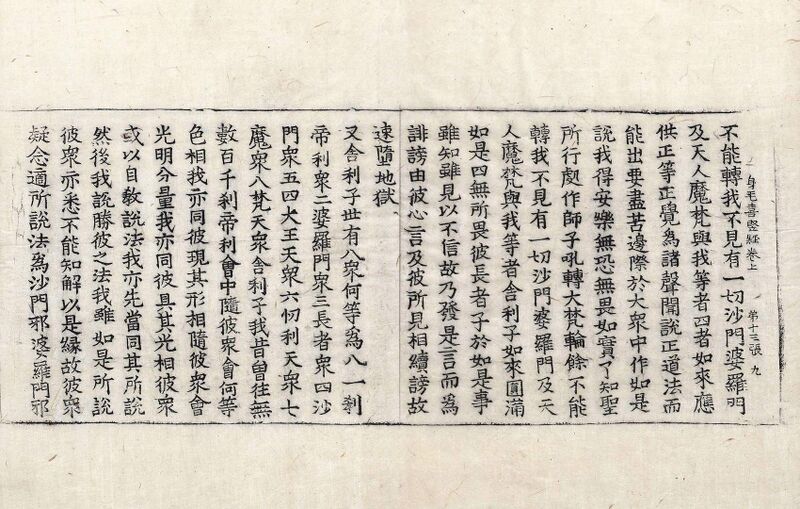 身毛喜竪經卷上　第十三張　九
不能轉我不見有一切沙門婆羅門
及天人魔梵與我等者四者如來應
供正等正覺爲諸聲聞說正道法而
能出要盡苦邊際於大衆中作如是
說我得安樂無恐無畏如實了知聖
所行處作師子吼轉大梵輪餘不能
轉我不見有一切沙門婆羅門及天
人魔梵與我等者舍利子如來圓滿
如是四無所畏彼長者子於如是事
雖知雖見以不信故乃發是言而爲
誹謗由彼心言及彼所見相續謗故
速墮地獄
又舍利子世有八衆何等爲八一刹
帝利衆二婆羅門衆三長者衆四沙
門衆五四大王天衆六忉利天衆七
魔衆八梵天衆舍利子我昔曾往無
數百千刹帝利會中隨彼衆會何等
色相我亦同彼現其形相隨彼衆會
光明分量我亦同彼具其光相彼衆
或以自教說法我亦先當同其所說
然後我說勝彼之法我雖如是所說
彼衆亦悉不能知解以是緣故彼衆
疑念適所說法爲沙門邪婆羅門邪